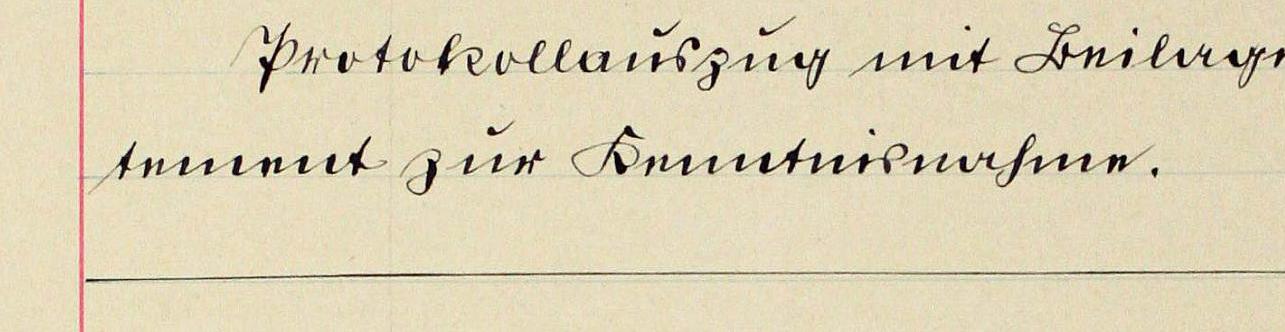 Protokollauszug mit Beilage
tement zur Kenntnisnahme.